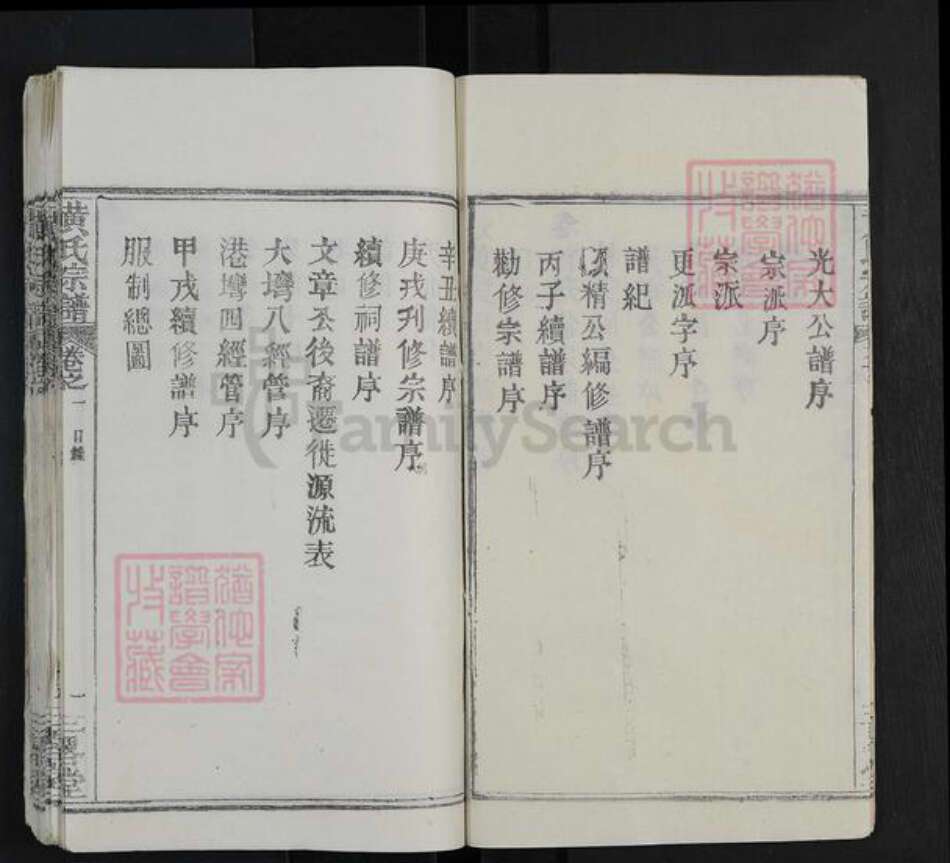 光大公譜序
宗派序
宗派
更派字序
譜紀
精公編修譜序
丙子續譜序
勸修宗譜序
辛丑續譜序
庚戌刋修宗譜序
續修祠譜序
文章公後裔遷徙源流表
大塆八經管序
港塆四經管序
甲戌續修譜序
服制總圖
黃氏宗譜
卷之一
目錄
一
FamilySearch
譜學會
收藏